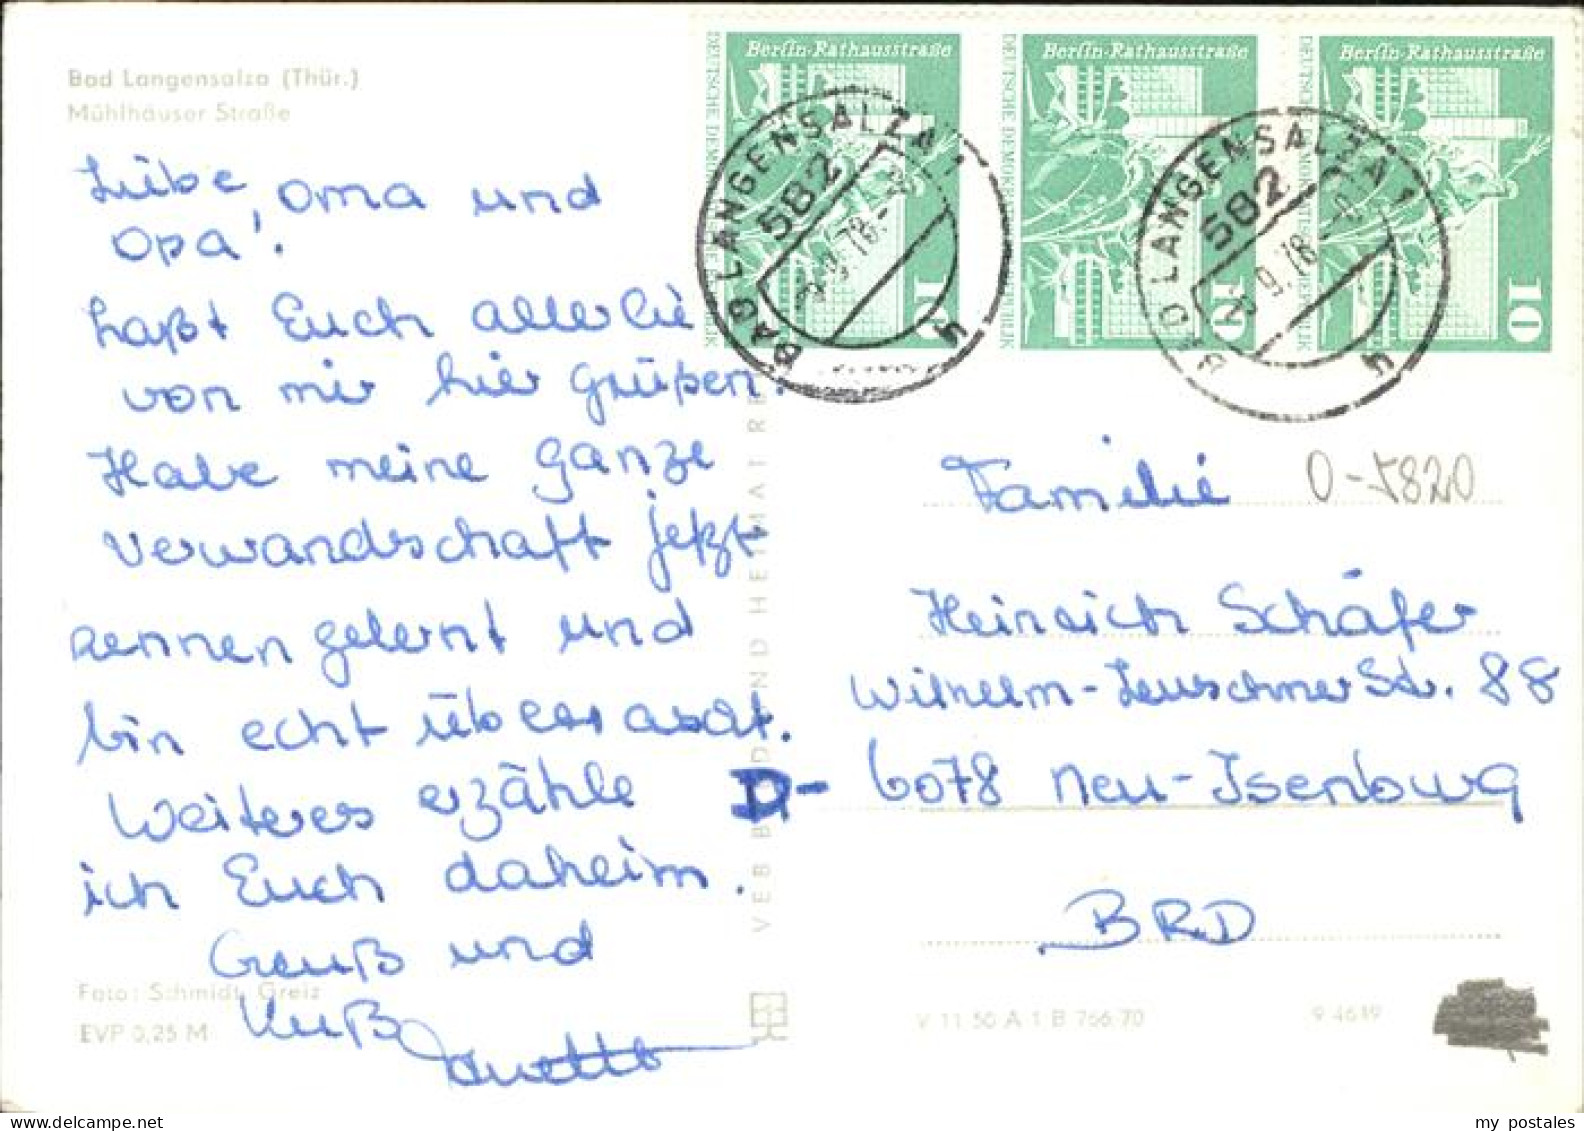 Bad Langensalza (Thür.)
Mühlhäuser Straße
Liebe Oma und
Opa!
Laßt Euch allerlie
von mir hier Grüßen.
Habe meine ganze
Verwandschaft jetzt
kennen gelernt und
bin echt überrascht.
Weiteres erzähle
ich Euch daheim.
Gruß und
Kuß
Foto: Schmidt, Greiz
EVP 0,25 M
VEB BILD UND HEIMAT RE
Berlin-Rathausstraße
DEUTSCHE DEMOKRATISCHE REPUBLIK
10
Berlin-Rathausstraße
DEUTSCHE DEMOKRATISCHE REPUBLIK
10
Berlin-Rathausstraße
DEUTSCHE DEMOKRATISCHE REPUBLIK
10
BAD LANGENSALZA 1
582
9.78
h
BAD LANGENSALZA 1
582
9.78
h
Familie
O-5820
Heinrich Schäfer
Wilhelm-Leuschner Str. 88
D- 6078 Neu-Isenburg
BRD
V 11 50 A 1 B 766/70
9 4619
my postales